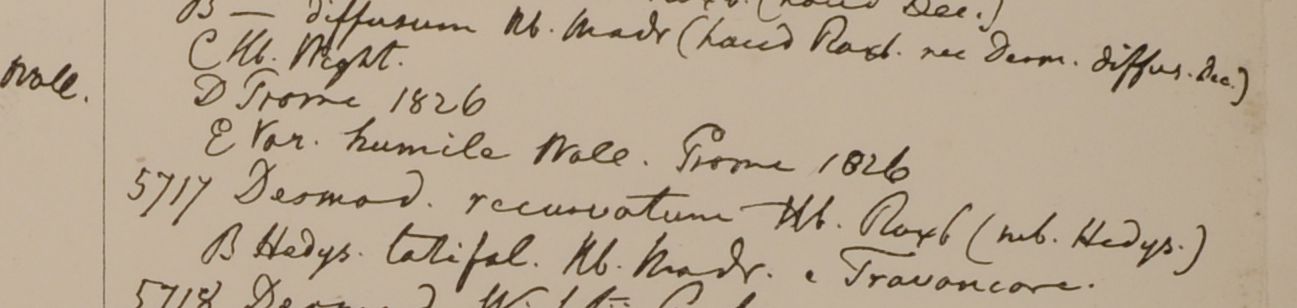 B — diffusum Hb. Madr (haud Roxb. nec Desm. diffus. Dec.)
C Hb. Wight.
Wall.
D Prome 1826
E Var. humile Wall. Prome 1826
5717 Desmod. recurvatum Hb. Roxb (sub. Hedys.)
B Hedys. latifol. Hb. Madr. e Travancore.
5718 Desmod. Wightii